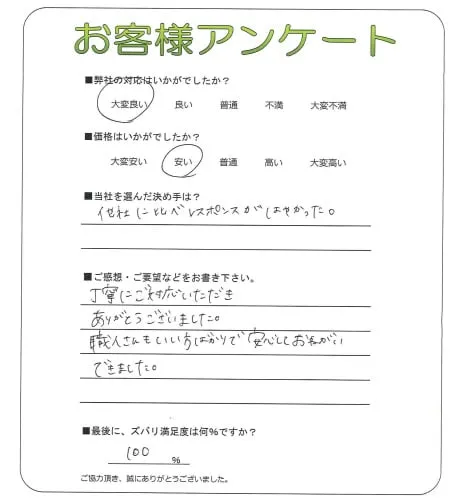 お客様アンケート
■弊社の対応はいかがでしたか？
大変良い 良い 普通 不満 大変不満
■価格はいかがでしたか？
大変安い 安い 普通 高い 大変高い
■当社を選んだ決め手は？
他社に比べレスポンスがはやかった。
■ご感想・ご要望などをお書き下さい。
丁寧にご対応いただき
ありがとうございました。
職人さんもいい方ばかりで安心しておねがい
できました。
■最後に、ズバリ満足度は何%ですか？
100 %
ご協力頂き、誠にありがとうございました。